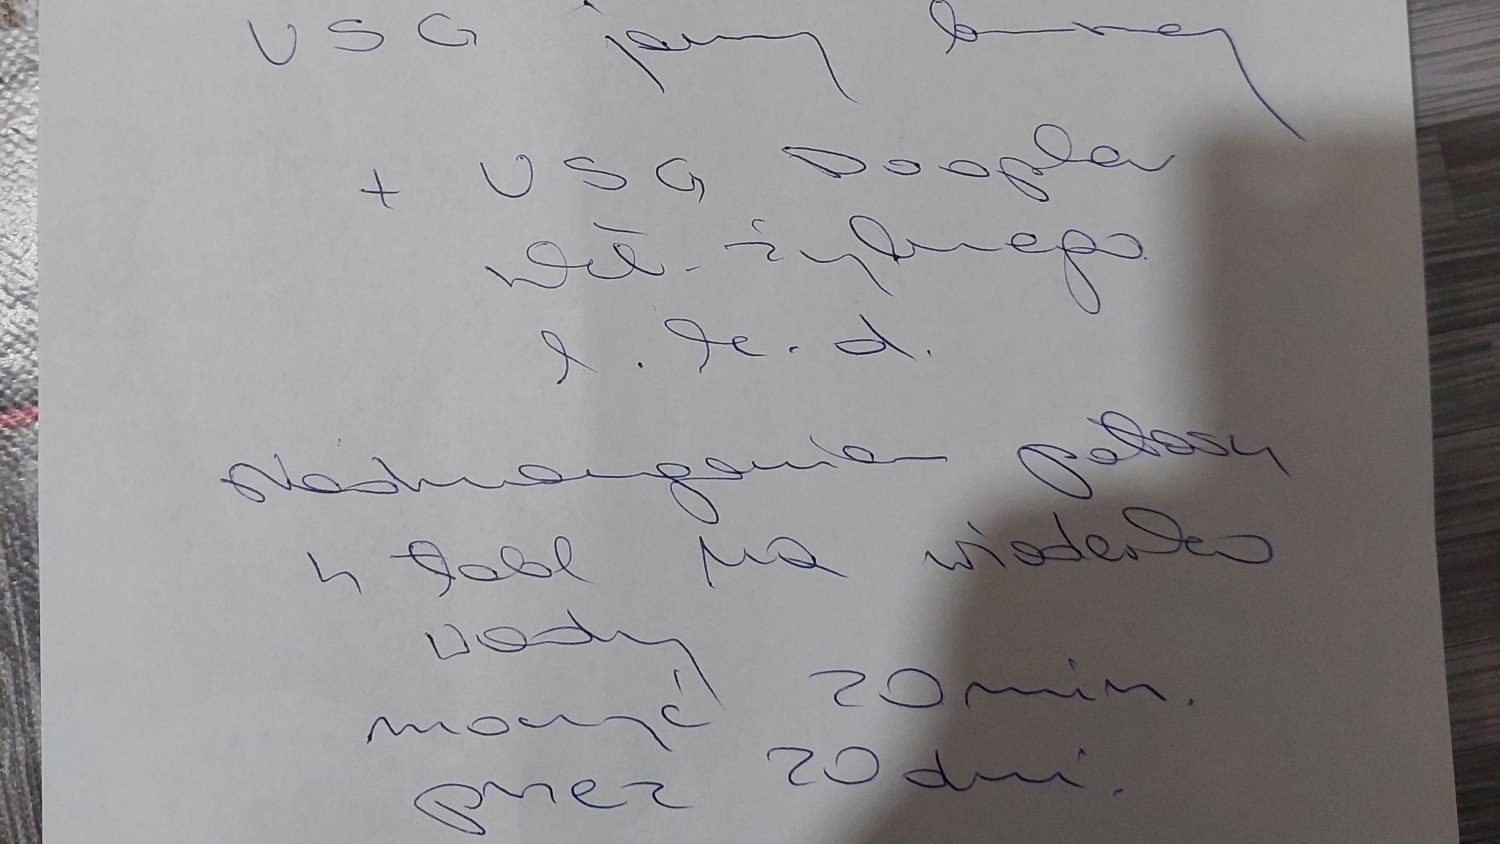 USG jamy brzusznej
+ USG Doppler
ukł. żylnego
k. k. d.
Nadmanganian potasu
4 tabl na wiaderko
wody
moczyć 20 min.
przez 20 dni.